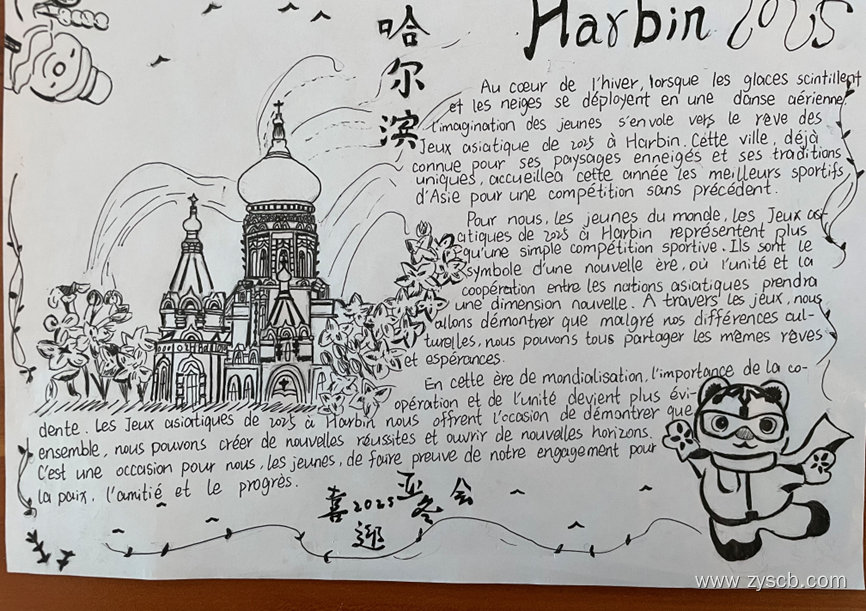 Harbin 2025
哈
尔
滨
Au cœur de l'hiver, lorsque les glaces scintillent
et les neiges se déployent en une danse aérienne,
l'imagination des jeunes s'envole vers le rêve des
Jeux asiatique de 2025 à Harbin. Cette ville, déjà
connue pour ses paysages enneigés et ses traditions
uniques, accueillea cette année les meilleurs sportifs
d'Asie pour une compétition sans précédent.
Pour nous, les jeunes du monde, les Jeux as-
atiques de 2025 à Harbin représentent plus
qu'une simple compétition sportive. Ils sont le
symbole d'une nouvelle ère, où l'unité et la
coopération entre les nations asiatiques prendra
une dimension nouvelle. A travers les jeux, nous
allons démontrer que malgré nos différences cul-
turelles, nous pouvons tous partager les mêmes rêves
et espérances.
En cette ère de mondialisation, l'importance de la co-
opération et de l'unité devient plus évi-
dente. Les Jeux asiatiques de 2025 à Harbin nous offrent l'occasion de démontrer que
ensemble, nous pouvons créer de nouvelles réussites et ouvrir de nouvelles horizons.
C'est une occasion pour nous, les jeunes, de faire preuve de notre engagement pour
la paix, l'amitié et le progrès.
喜迎2025亚冬会
www.zyscb.com